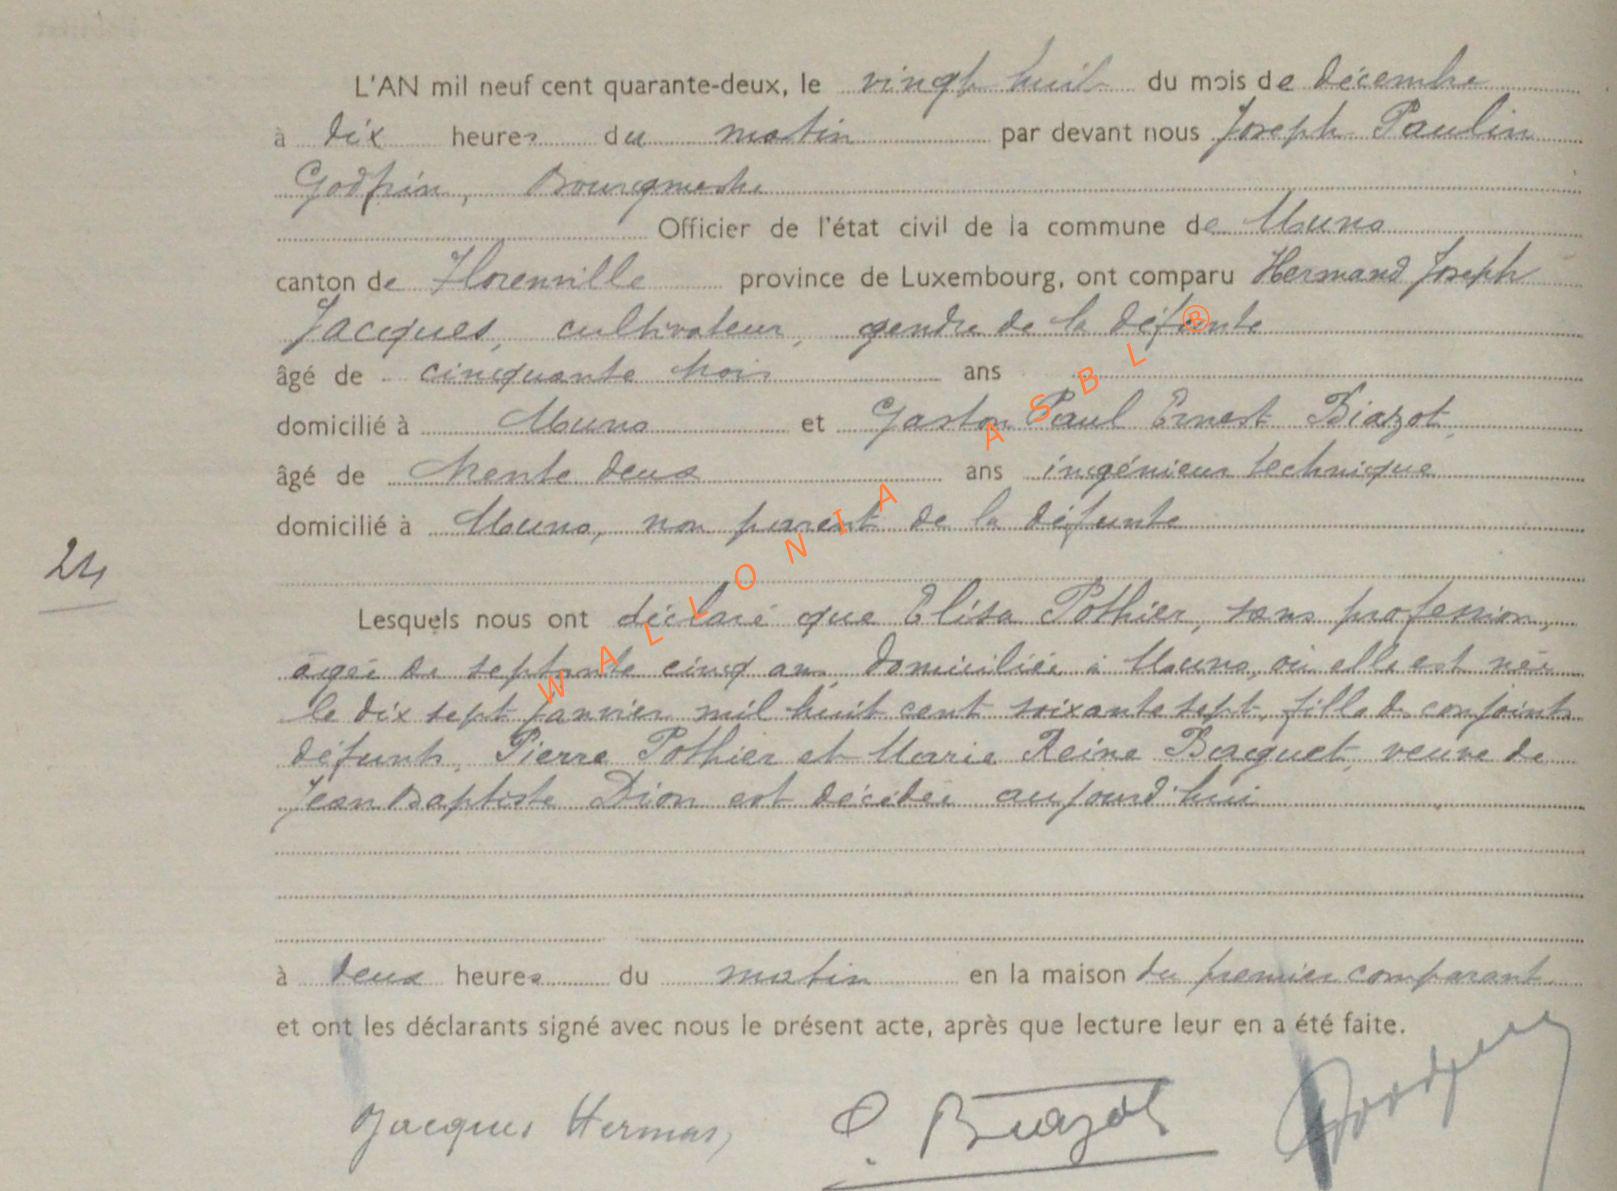 L'AN mil neuf cent quarante-deux, le vingt huit du mois de décembre
à dix heures du matin par devant nous Joseph Paulin
Godfrin, Bourgmestre
Officier de l'état civil de la commune de Muno
canton de Florenville province de Luxembourg, ont comparu Hermand Joseph
Jacques, cultivateur, gendre de la défunte
âgé de cinquante trois ans
domicilié à Muno et Gaston Paul Ernest Biazot,
âgé de trente deux ans ingénieur technique
domicilié à Muno, non parent de la défunte
24
Lesquels nous ont déclaré que Elisa Pothier, sans profession,
âgée de septante cinq ans, domiciliée à Muno, où elle est née
le dix sept janvier mil huit cent soixante sept, fille de conjoints
défunts, Pierre Pothier et Marie Reine Bacquet, veuve de
Jean Baptiste Dion est décédée aujourd'hui
à deux heures du matin en la maison du premier comparant
et ont les déclarants signé avec nous le présent acte, après que lecture leur en a été faite.
Jacques Herman, Biazot
WALLONIA ASBL ®